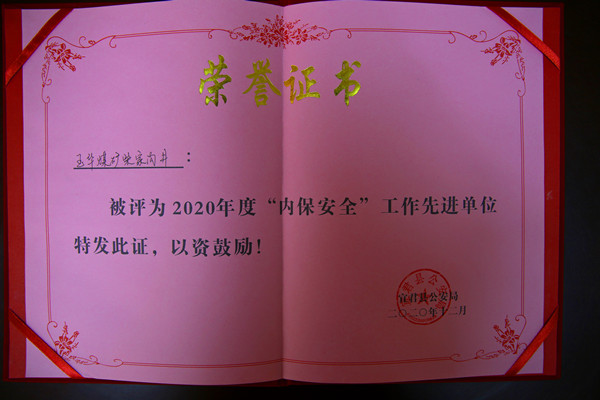 荣誉证书
玉华煤矿柴家沟井：
被评为2020年度“内保安全”工作先进单位
特发此证，以资鼓励！
宜君县公安局
二〇二〇年十二月